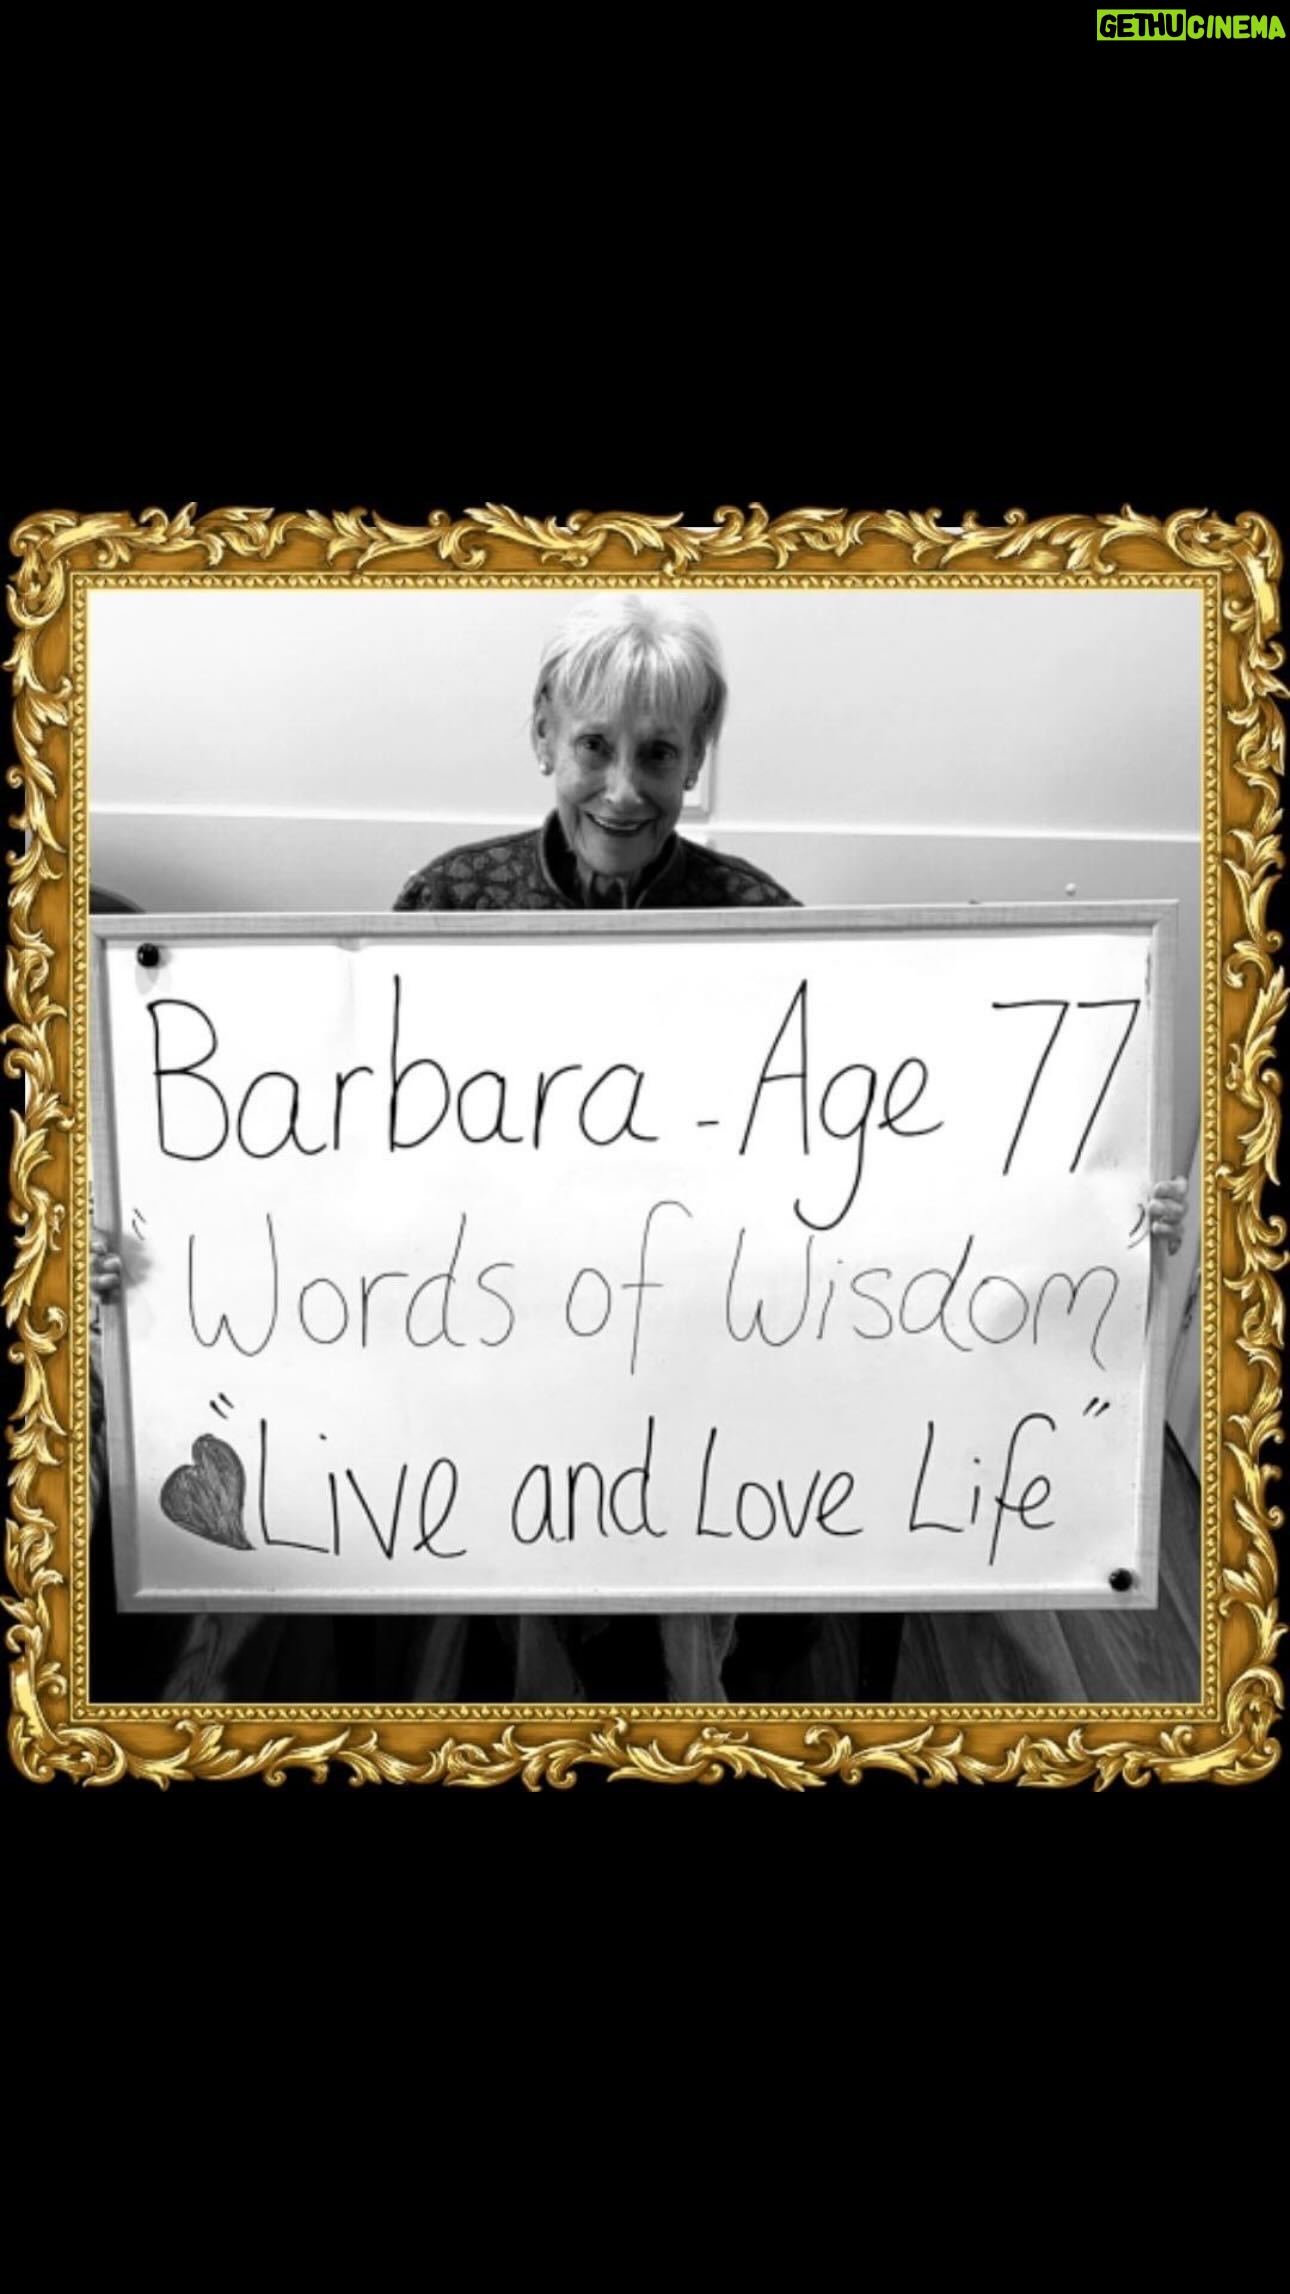 GETHUCINEMA
Barbara - Age 77
"Words of Wisdom"
"Live and Love Life"